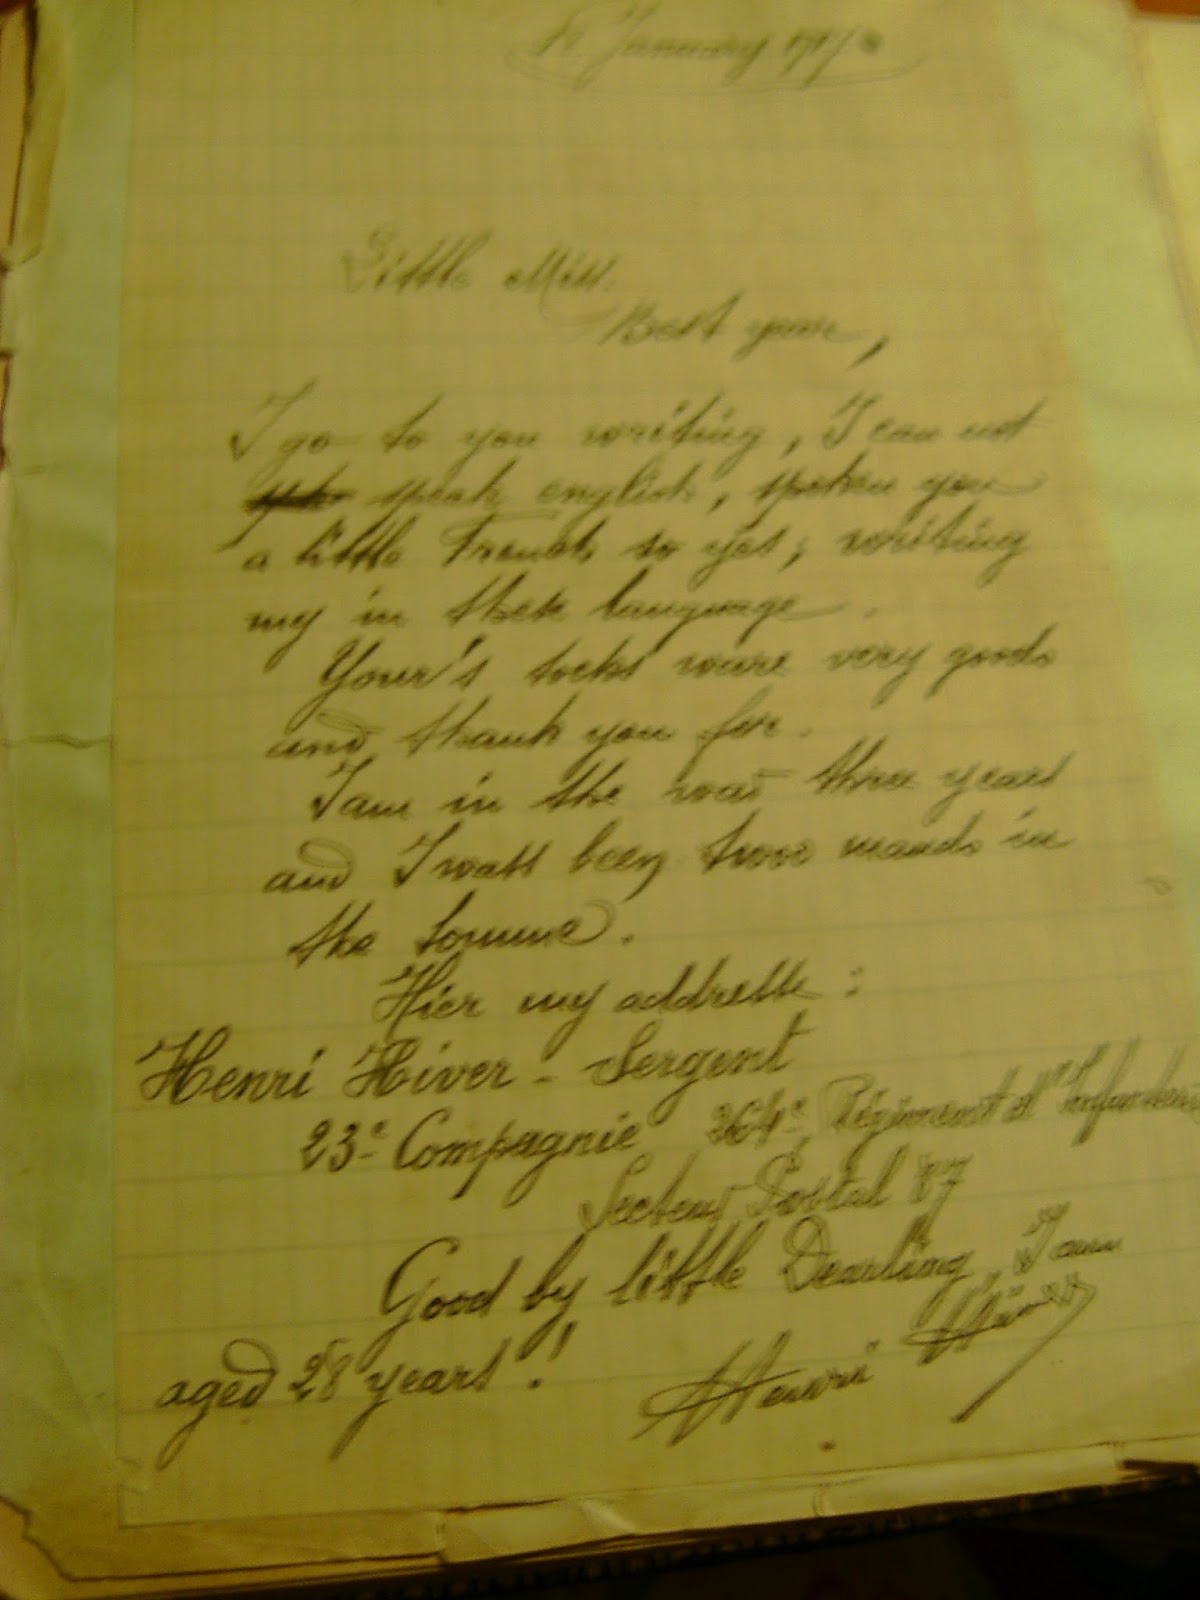 January 1917
Little Miss.
Best yours,
I go to you writing, I can not
speak english, spoken you
a little French so yes; writing
my in thek language.
Your's socks ware very goods
and thank you for.
I am in the war three years
and I wass been twoo mands in
the Somme.
Hier my addresse:
Henri Hiver - Sergent
23e Compagnie 264e Régiment d'Infanterie
Secteur Postal 87
Good by little Dearling, I am
aged 28 years!
Henri Hiver